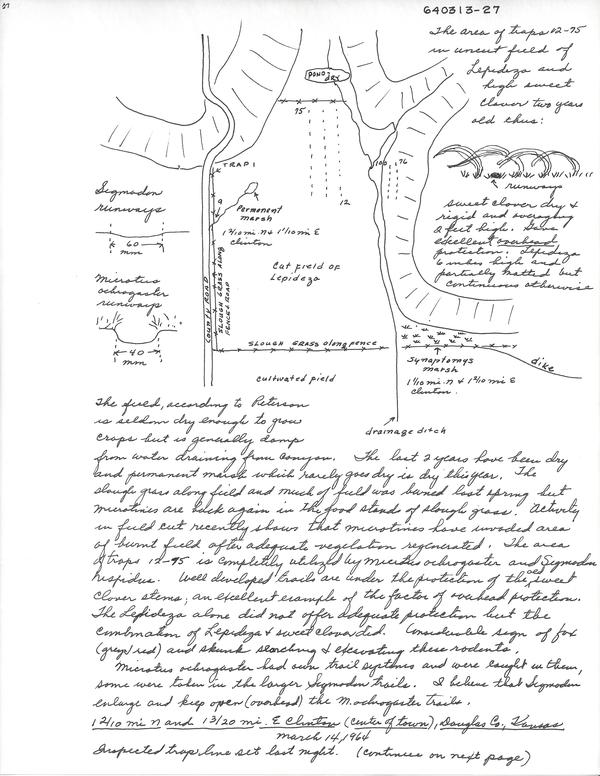 57
640313-27
The area of traps 12-75
in uncut field of
Lepideza and
high sweet
clover two years
old thus:
runways
sweet clover dry &
rigid and averaging
2 feet high. Gave
excellent overhead
protection. Lepideza
6 inches high and
partially matted but
continuous otherwise
POND DRY
75
12
100 76
TRAP 1
9
Permanent
marsh
1 2/10 mi. n & 1 3/10 mi E
Clinton
Sigmodon
runways
60
mm
Microtus
ochrogaster
runways
40
mm
COUNTY ROAD
SLOUGH GRASS ALONG
FENCE & ROAD
Cut field of
Lepideza
SLOUGH GRASS along fence
cultivated field
Synaptomys
marsh
1 1/10 mi. n & 1 4/10 mi E
Clinton.
dike
drainage ditch
The field, according to Peterson
is seldom dry enough to grow
crops but is generally damp
from water draining from canyon. The last 2 years have been dry
and permanent marsh which rarely goes dry is dry this year. The
slough grass along field and much of field was burned last spring but
microtines are back again in the food stands of slough grass. Activity
in field cut recently shows that microtines have invaded area
of burnt field after adequate vegetation regenerated. The area
of traps 12-75 is completely utilized by Microtus ochrogaster and Sigmodon
hispidus. Well developed trails are under the protection of the old sweet
clover stems; an excellent example of the factor of overhead protection.
The Lepideza alone did not offer adequate protection but the
combination of Lepideza & sweet clover did. Considerable sign of fox
(grey/red) and skunk searching & excavating these rodents.
Microtus ochrogaster had own trail systems and were caught in them,
some were taken in the larger Sigmodon trails. I believe that Sigmodon
enlarge and keep open (overhead) the M. ochrogaster trails.
1 2/10 mi n and 1 3/20 mi. E Clinton (center of town), Douglas Co., Kansas
march 14, 1964
Inspected trap line set last night. (continues on next page)